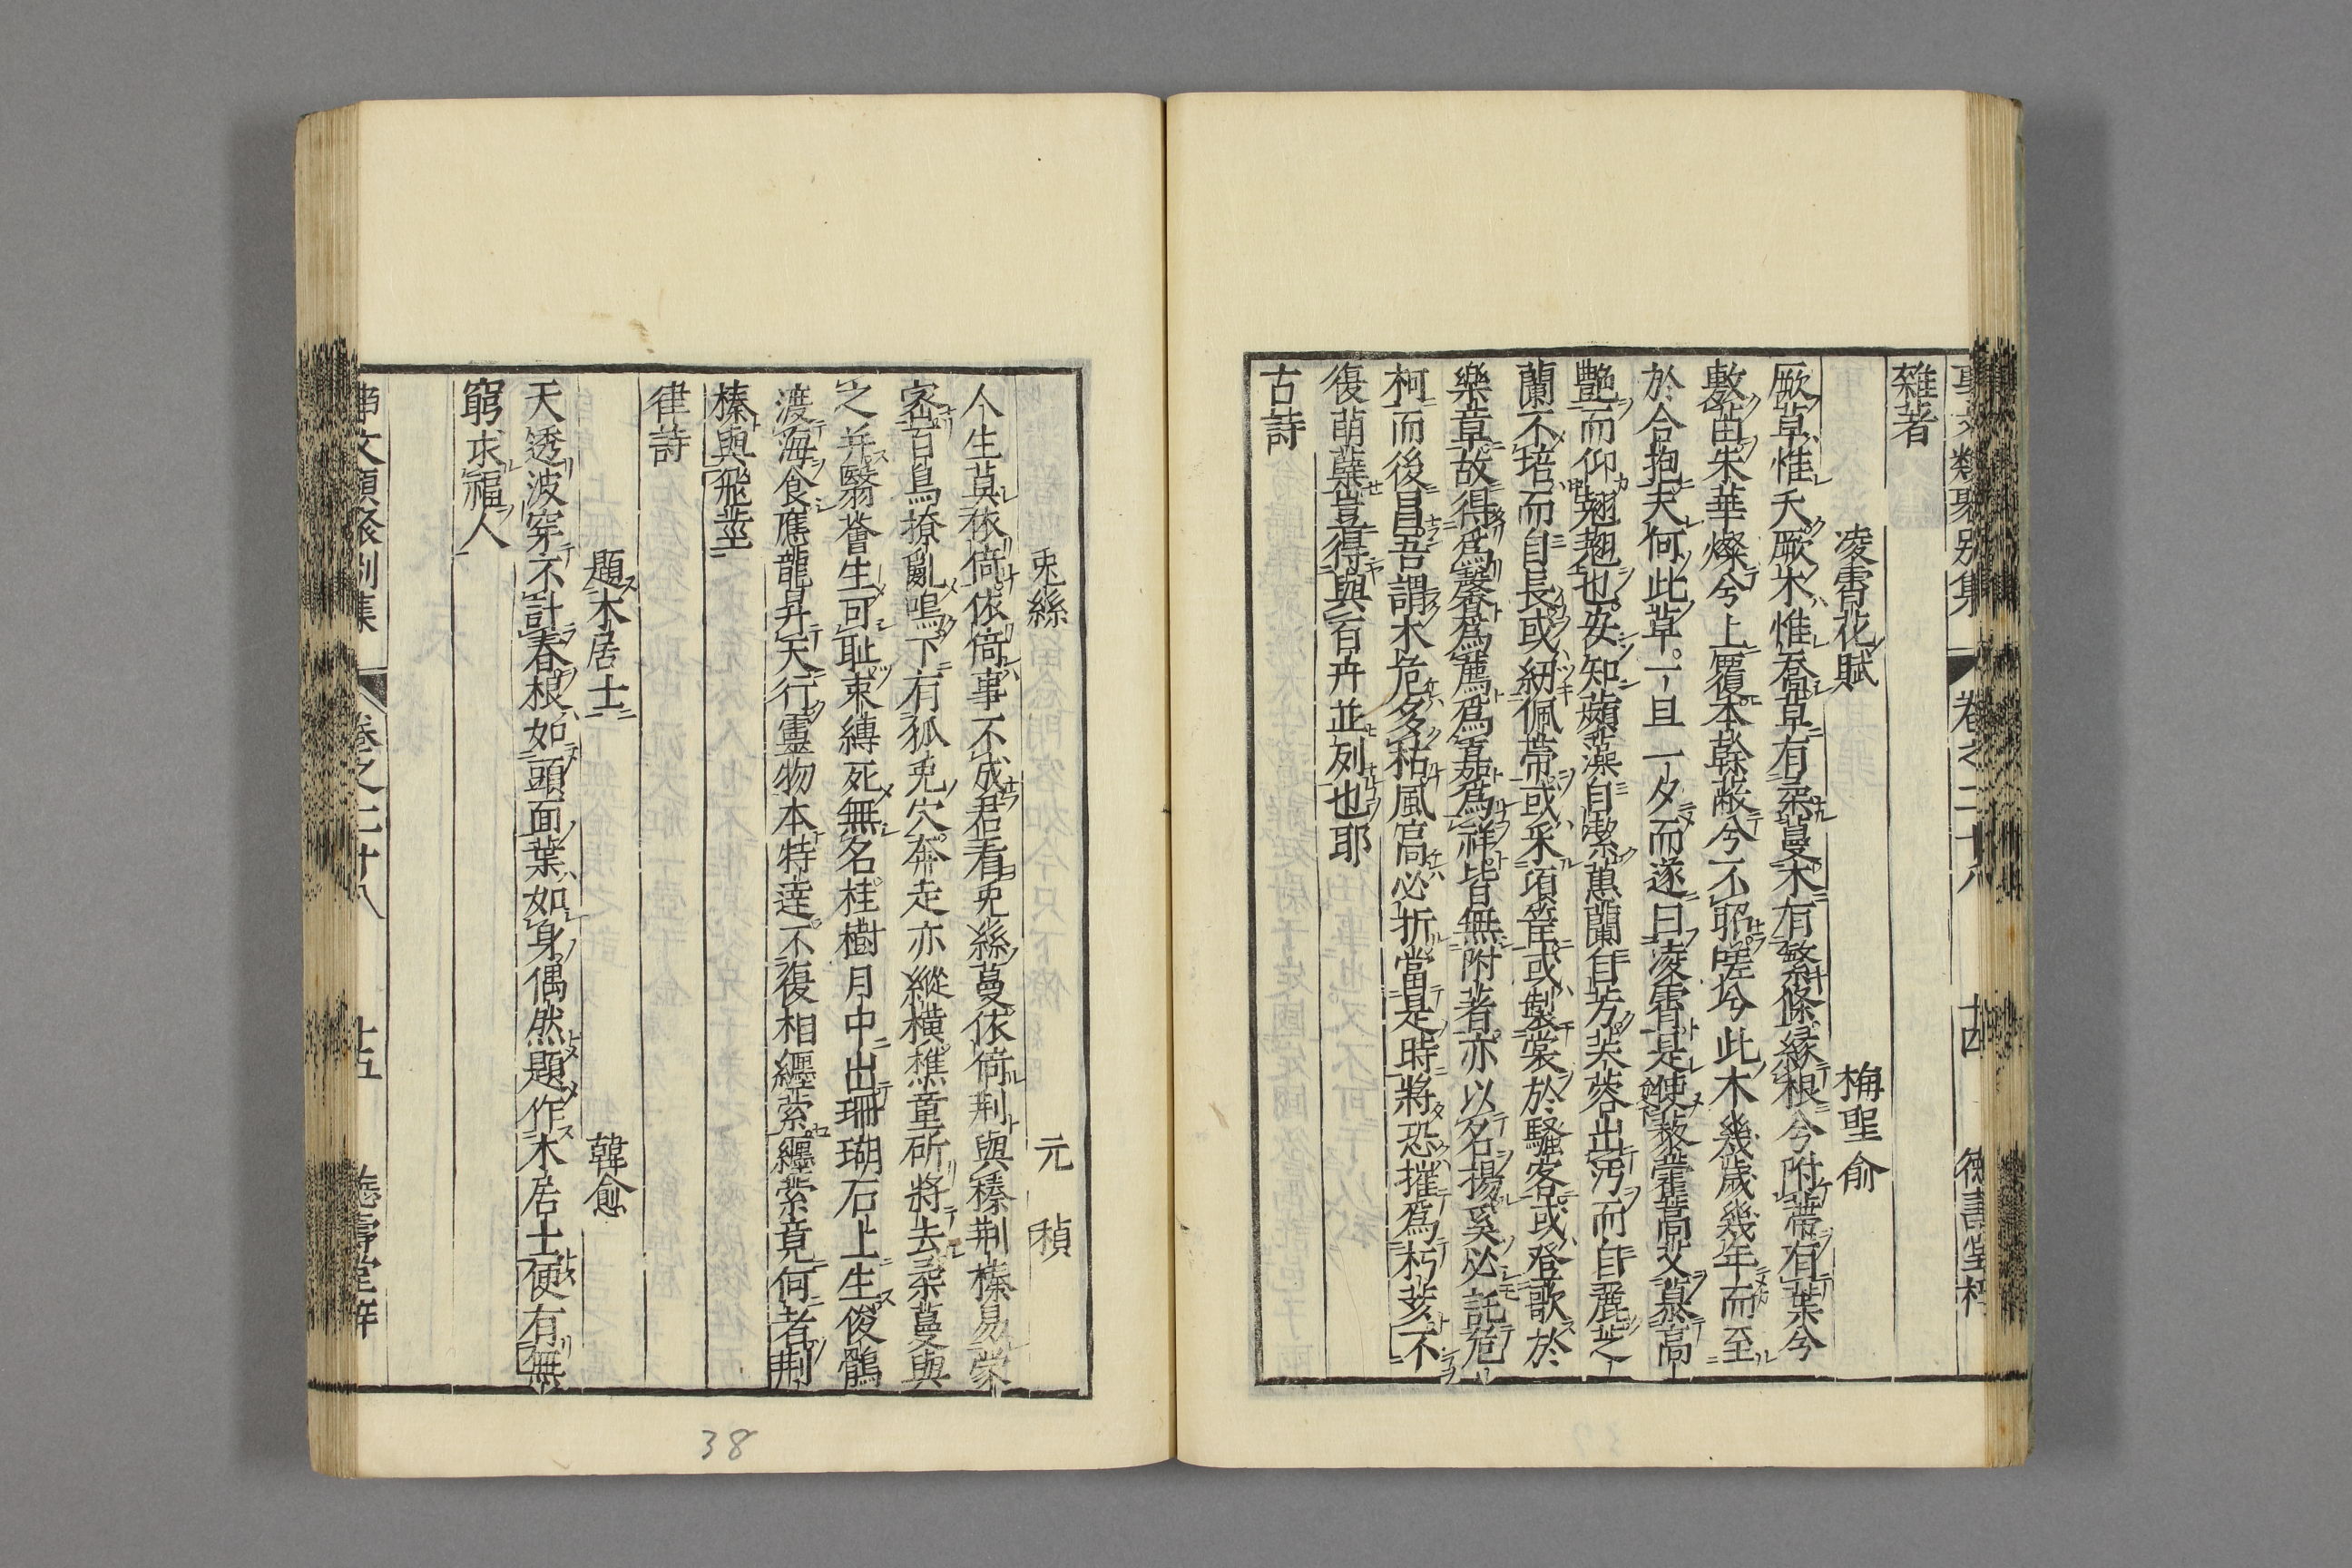 事文類聚别集 卷之二十八 十四 德壽堂梓
雜著
凌霄花賦 梅聖俞
厥草惟夭厥木惟喬草有柔蔓木有繁條緣根兮附蔕有葉兮
敷苗朱華燦兮上覆本榦蔽兮不昭嗟兮此木幾歲幾年而至
於合抱夫何此草一旦一夕而遂曰凌霄是使藜藿蒿艾慕高
艷而仰翹翹也安知蘋藻自潔蕙蘭自芳芙蓉出汚而自麗芝
蘭不培而自長或紉佩帶或采頃筐或製裳於騷客或登歌於
樂章故得爲馨爲薦爲嘉爲祥皆無附著亦以名揚奚必託危
柯而後昌吾謂木危多枯風高必折當是時將恐摧爲朽荄不
復萌蘖豈得與百卉並列也耶
古詩
兎絲 元稹
人生莫依倚依倚事不成君看兎絲蔓依倚荆與榛荆榛易蒙
密百鳥撩亂鳴下有狐兎穴奔走亦縱横樵童斫將去柔蔓與
之并翳薈生可耻束縛死無名桂樹月中出珊瑚石上生俊鶻
渡海食應龍昇天行靈物本特達不復相纒縈纒縈竟何者荆
榛與飛莖
律詩
題木居士 韓愈
天透波穿不計春根如頭面葉如身偶然題作木居士便有無
窮求福人
事文類聚别集 卷之二十八 十五 德壽堂梓
38